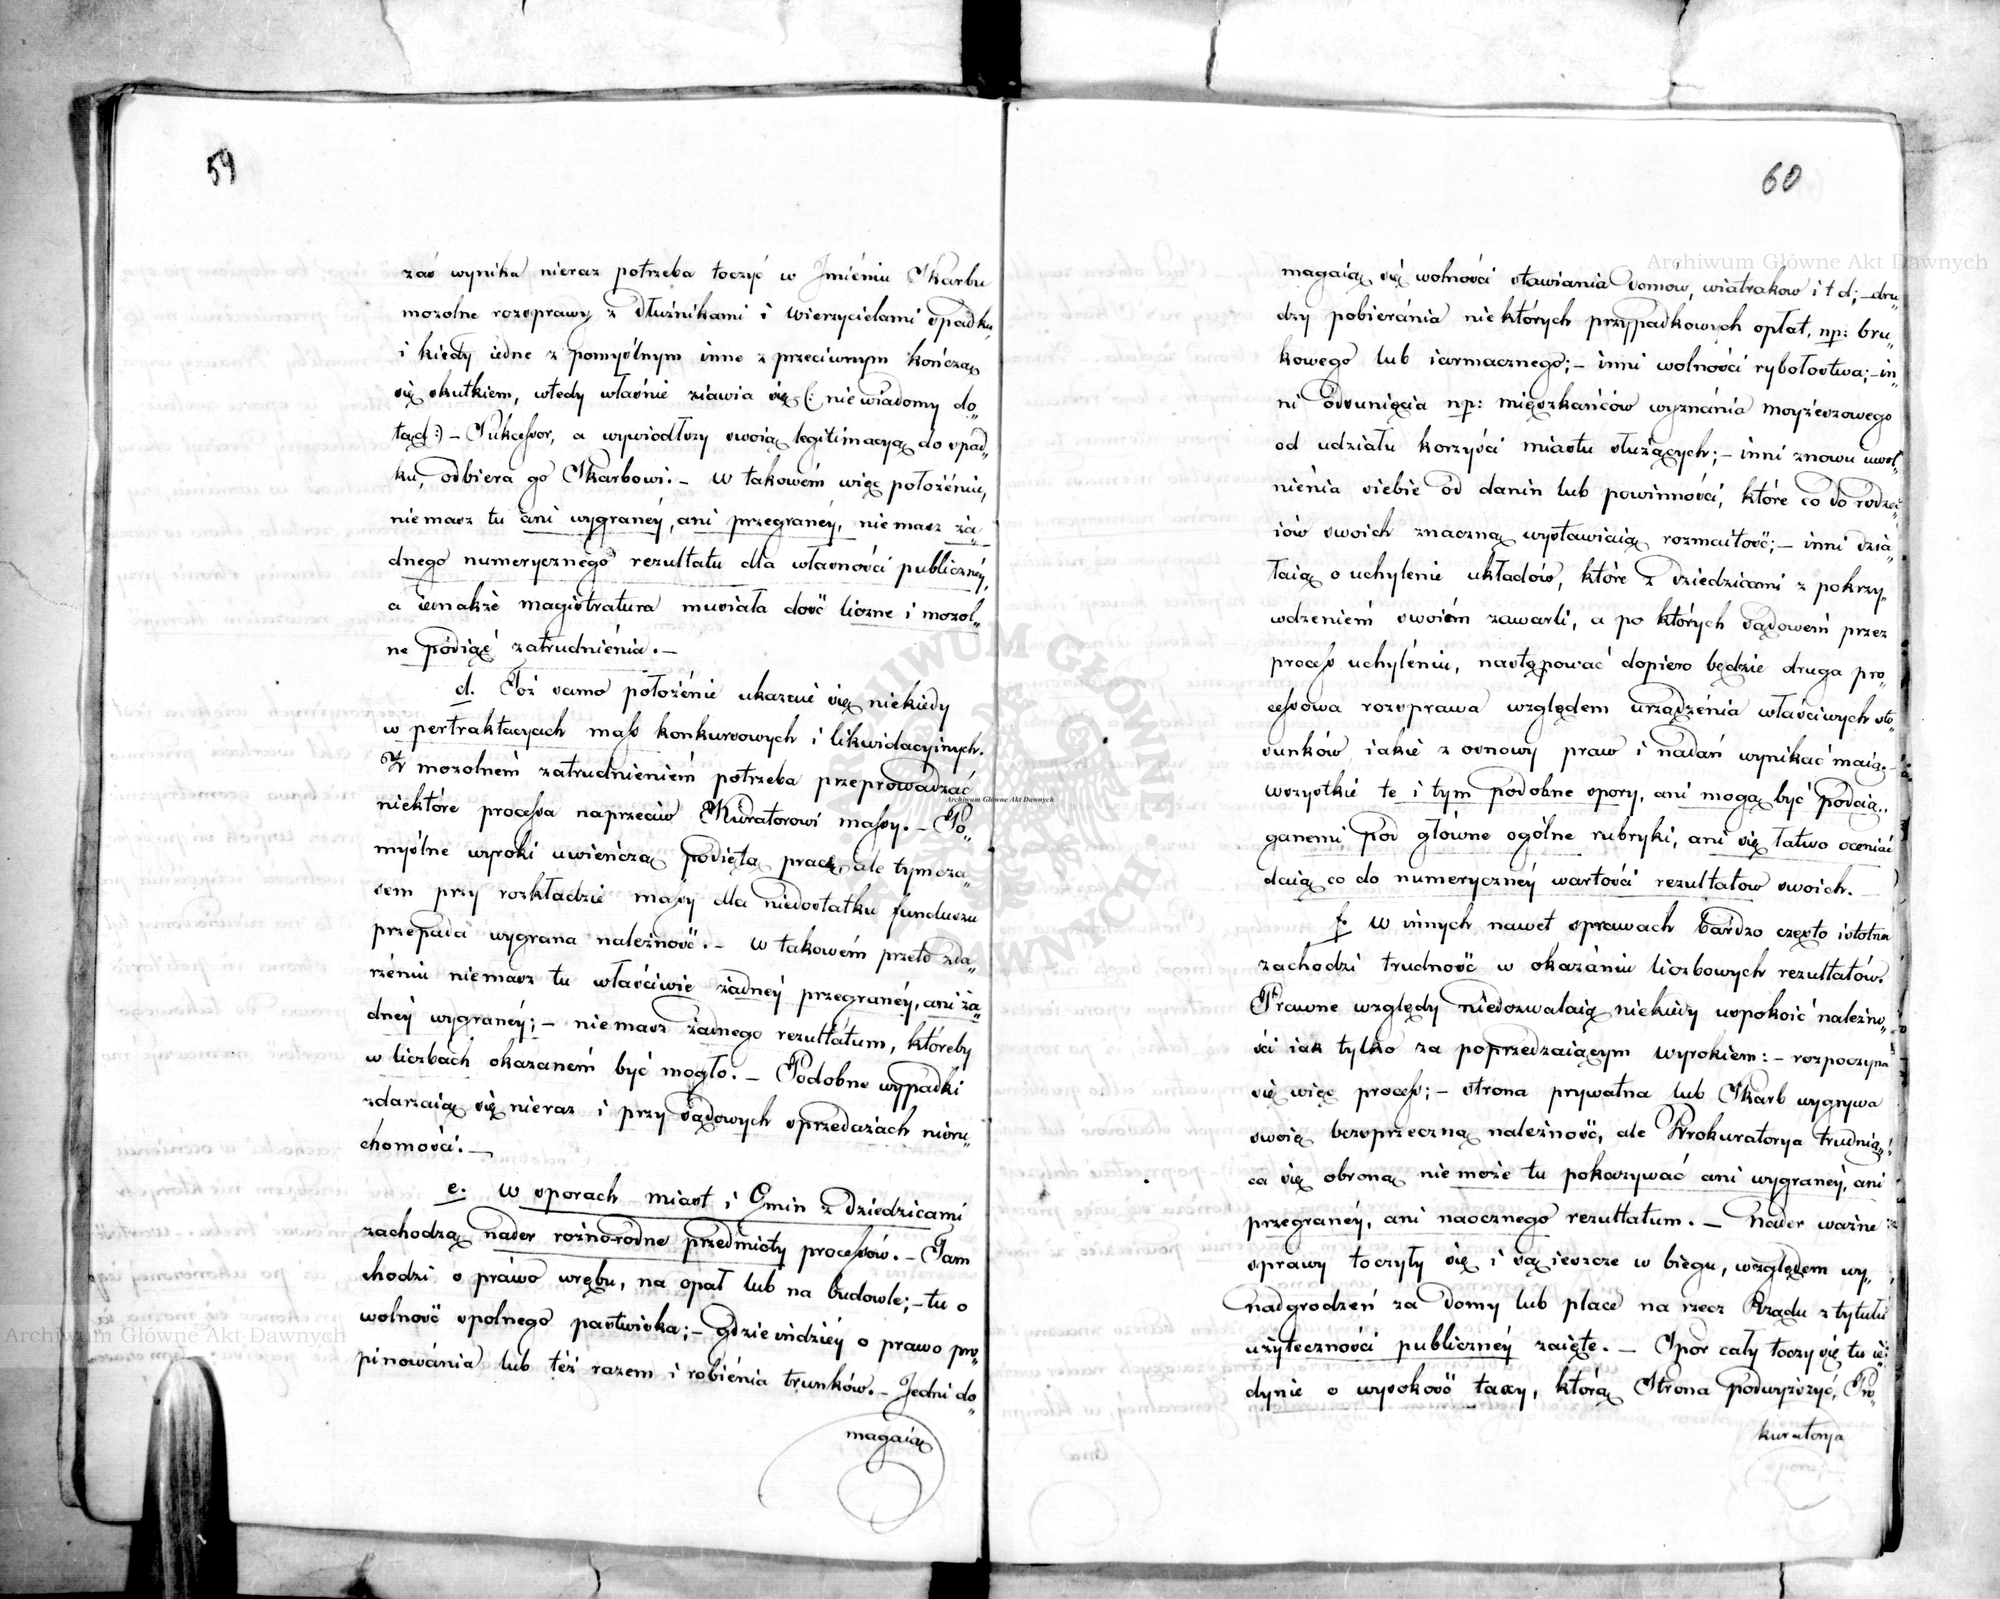 59
zaś wynika nieraz potrzeba toczyć w Jmieniu Skarbu
mozolne rozprawy z dłużnikami i wierzycielami spadku,
i kiedy iedne z pomyślnym inne z przeciwnym kończą
się skutkiem, wtedy właśnie ziawia się (: niewiadomy do„
tąd :) – Sukcessor, a wywiodłszy swoią legitimacyą do spad„
ku, odbiera go Skarbowi. – W takowém więc położéniu,
niemasz tu ani wygranéy, ani przegranéy, niemasz ża„
dnego numerycznego rezultatu dla własności publicznéy,
a iednakże magistratura musiała dość liczne i mozol„
ne podiąć zatrudniénia. –
d. Toż samo położénie ukazuie się niekiedy
w pertraktacyach mass konkursowych i likwidacyinych.
Z mozolném zatrudnieniém potrzeba przeprowadzać
niektóre processa naprzeciw Kuratorowi massy. – Po„
myślne wyroki uwieńczą podiętą pracę, ale tymcza„
sem przy rozkładzie massy dla niedostatku funduszu
przepada wygrana należność. – W takowém przeto zda„
rzéniu niemasz tu właściwie żadnéy przegranéy, ani ża„
dnéy wygranéy; – niemasz żadnego rezultatum, któreby
w liczbach okazaném być mogło. – Podobne wypadki
zdarzaią się nieraz i przy sądowych sprzedażach niéru„
chomości. –
e. W sporach miast i Gmin z Dziedzicami
zachodzą nader rożnorodne przedmioty processów. – Tam
chodzi o práwo wrębu, na opał lub na budowle; – tu o
wolność spolnego pastwiska; – gdzieindziéy o prawo pro„
pinowánia lub też razem i robiénia trunków. – Jedni do„
magaią
60
magaią się wolności stawiania domow, wiatrakow i t d; – dru„
dzy pobieránia niektórych przypadkowych opłat, np: bru„
kowego lub iarmacznego; – inni wolności rybołostwa; – in„
ni odsunięcia np: mięszkańców wyznánia moyżeszowego
od udziału korzyści miastu służących; – inni znowu uwol„
niénia siebie od danin lub powinności, które co do rodza„
iów swoich znaczną wystawiaią rozmaitość; – inni dzia„
łaią o uchylenie układów, które z dziedzicami z pokrzy„
wdzeniém swoiém zawarli, a po których sądowém przez
process uchyléniu, następować dopiero będzie druga pro„
cessowa rozprawa względem urządzénia właściwych sto„
sunków iakie z osnowy praw i nadań wynikać maią. –
Wszystkie te i tym podobne spory, ani mogą być podcią„
ganemi pod główne ogólne rubryki, ani się łatwo oceniać
daią co do numerycznéy wartości rezultatow swoich. –
f. W innych nawet sprawach bardzo często istotna
zachodzi trudność w okazániu liczbowych rezultatów.
Prawne względy niedozwalaią niekiedy uspokoić należno„
ści iak tylko za poprzedzaiącym wyrokiem: – rozpoczyna
się więc process; – strona prywatna lub Skarb wygrywa
swoią bezsprzeczną należność, ale Prokuratorya trudnią„
ca się obroną niemoże tu pokazywać ani wygranéy, ani
przegranéy, ani naocznego rezultatum. – Nader ważne
sprawy toczyły się i są ieszcze w biegu, względem wy„
nadgrodzeń za domy lub place na rzecz Rządu z tytułu
użyteczności publicznéy zaięte. – Spór cały toczy się tu ie„
dynie o wysokość taxy, którą Strona podwyższyć, Pro„
kuratorya
Archiwum Główne Akt Dawnych
Archiwum Główne Akt Dawnych
Archiwum Główne Akt Dawnych
ARCHIWUM GŁÓWNE AKT DAWNYCH